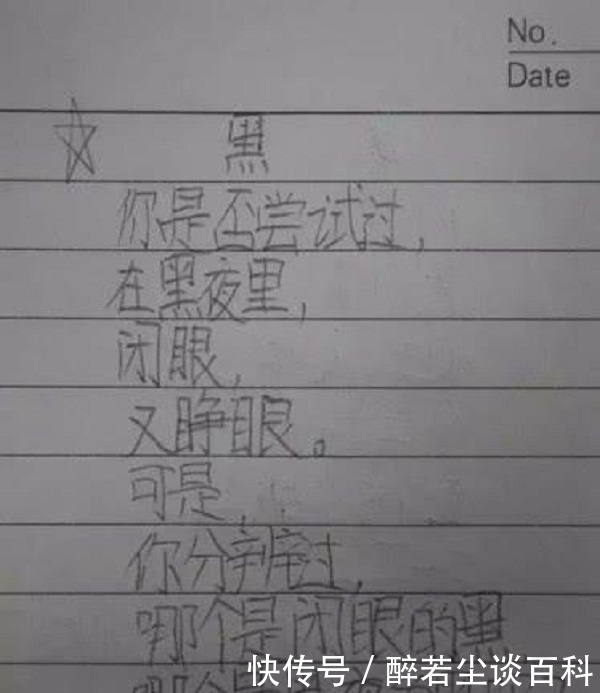 No.
Date
☆ 黑
你是否尝试过，
在黑夜里，
闭眼，
又睁眼。
可是，
你分辨过，
哪个是闭眼的黑
哪个是
快传号 / 醉若尘谈百科